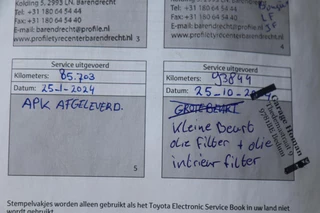 Kolding 5, 2993 LN, Barendrecht
Tel: +31 180 64 54 44
Fax: +31 180 64 54 40
E-mail: barendrecht@profile.nl
www.profiletyrecenterbarendrecht.nl
3
Tel:
Fax:
E-mail:
4
Service uitgevoerd
Kilometers: 85.703
Datum: 25-1-2024
APK AFGELEVERD.
5
Service uitgevoerd
Kilometers: 93844
Datum: 25-10-
GROTE BEURT
Kleine Beurt
olie filter + olie
intrieur filter
Garage
Stempelvakjes worden alleen gebruikt als het Toyota Electronic Service Book in uw land niet
wordt gebruikt.